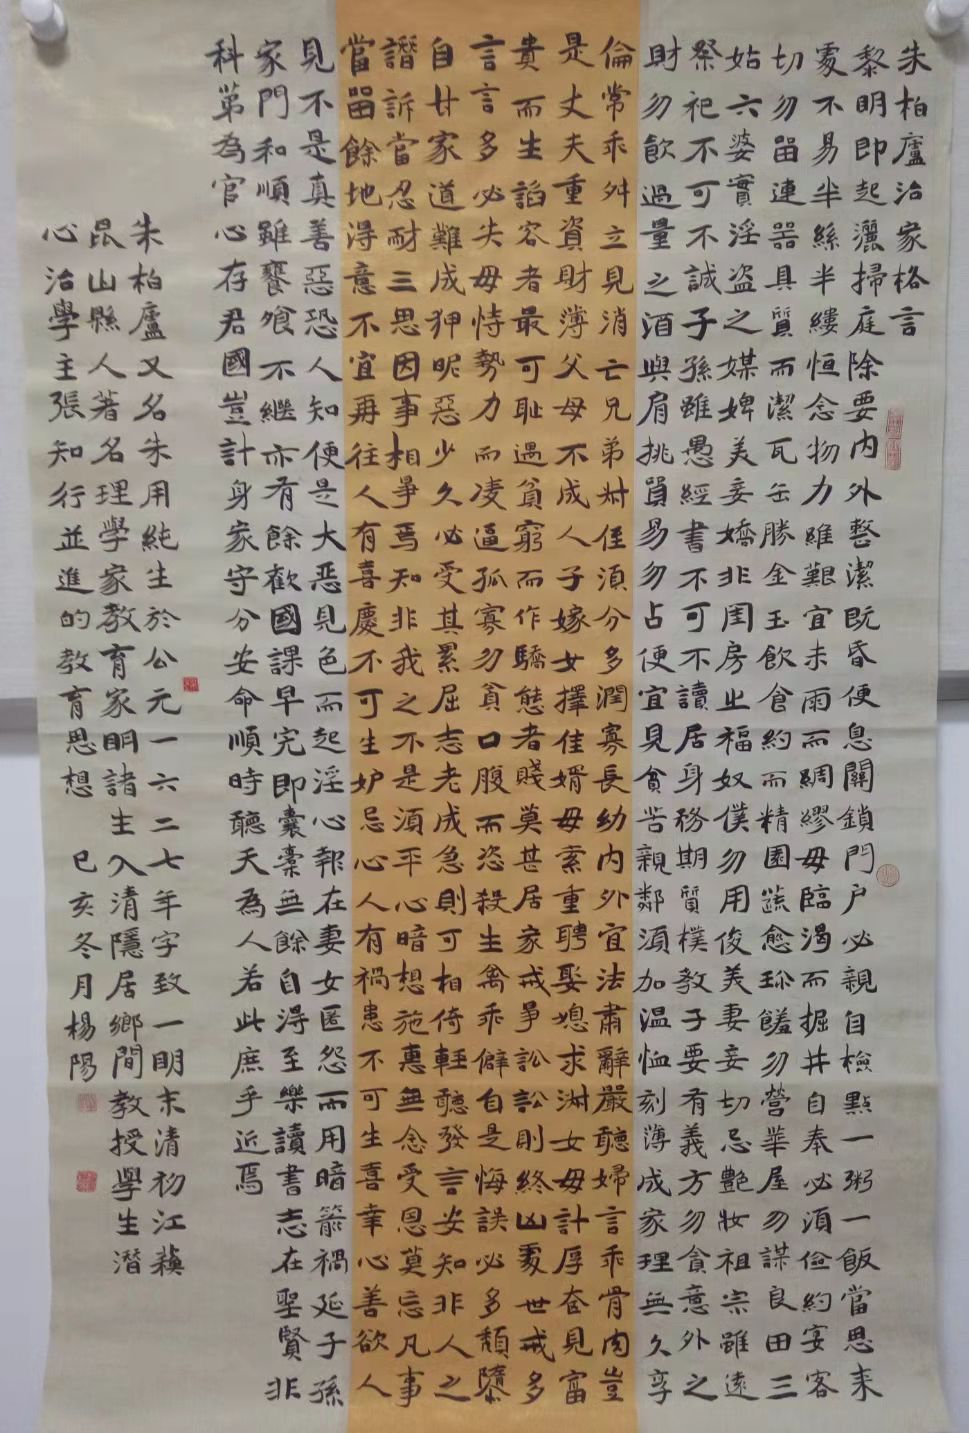 朱柏廬治家格言
黎明即起灑掃庭除要內外整潔既昏便息關鎖門戶必親自檢點一粥一飯當思来
處不易半絲半縷恒念物力維艱宜未雨而綢繆毋臨渴而掘井自奉必須儉約宴客
切勿畱連器具質而潔瓦缶勝金玉飲食約而精園蔬愈珎饈勿營華屋勿謀良田三
姑六婆實淫盗之媒婢美妾嬌非閨房止福奴僕勿用俊美妻妾切忌艷妝祖宗雖遠
祭祀不可不誠子孫雖愚經書不可不讀居身務期質樸教子要有義方勿貪意外之
財勿飲過量之酒與肩挑貿易勿占便宜見貪苦親鄰須加温恤刻薄成家理無久享
倫常乖舛立見消亡兄弟叔侄須分多潤寡長幼內外宜法肅辭嚴聽婦言乖骨肉豈
是丈夫重資財薄父母不成人子嫁女擇佳婿毋索重聘娶媳求淑女毋計厚奩見富
貴而生諂容者最可耻遇貧窮而作驕態者賤莫甚居家戒爭訟訟則終凶處世戒多
言言多必失毋恃勢力而凌逼孤寡勿貪口腹而恣殺生禽乖僻自是悔誤必多頹隳
自甘家道難成狎昵惡少久必受其累屈志老成急則可相倚輕聽發言安知非人之
譖訴當忍耐三思因事相爭焉知非我之不是須平心暗想施惠無念受恩莫忘凡事
當畱餘地得意不宜再往人有喜慶不可生妒忌心人有禍患不可生喜幸心善欲人
見不是真善惡恐人知便是大惡見色而起淫心報在妻女匿怨而用暗箭禍延子孫
家門和順雖饔飧不繼亦有餘歡國課早完即囊橐無餘自得至樂讀書志在聖賢非
科第為官心存君國豈計身家守分安命順時聽天為人若此庶乎近焉
朱柏廬又名朱用純生於公元一六二七年字致一明末清初江蘇
昆山縣人著名理學家教育家明諸生入清隱居鄉間教授學生潛
心治學主張知行並進的教育思想 己亥冬月楊陽